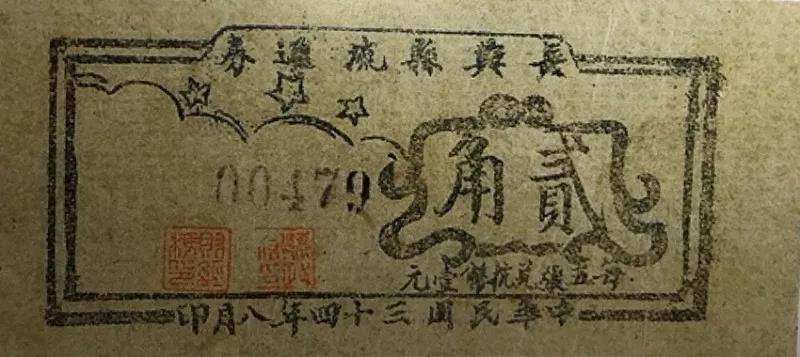 長興縣流通券
貳角
00479
每五張兌抗幣壹元
中華民國三十四年八月印